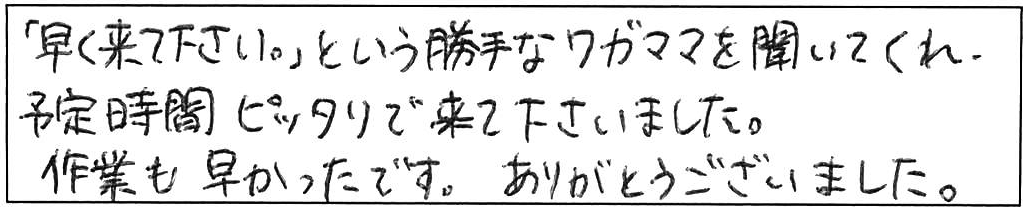 「早く来て下さい。」という勝手なワガママを聞いてくれ、
予定時間ピッタリで来て下さいました。
作業も早かったです。ありがとうございました。